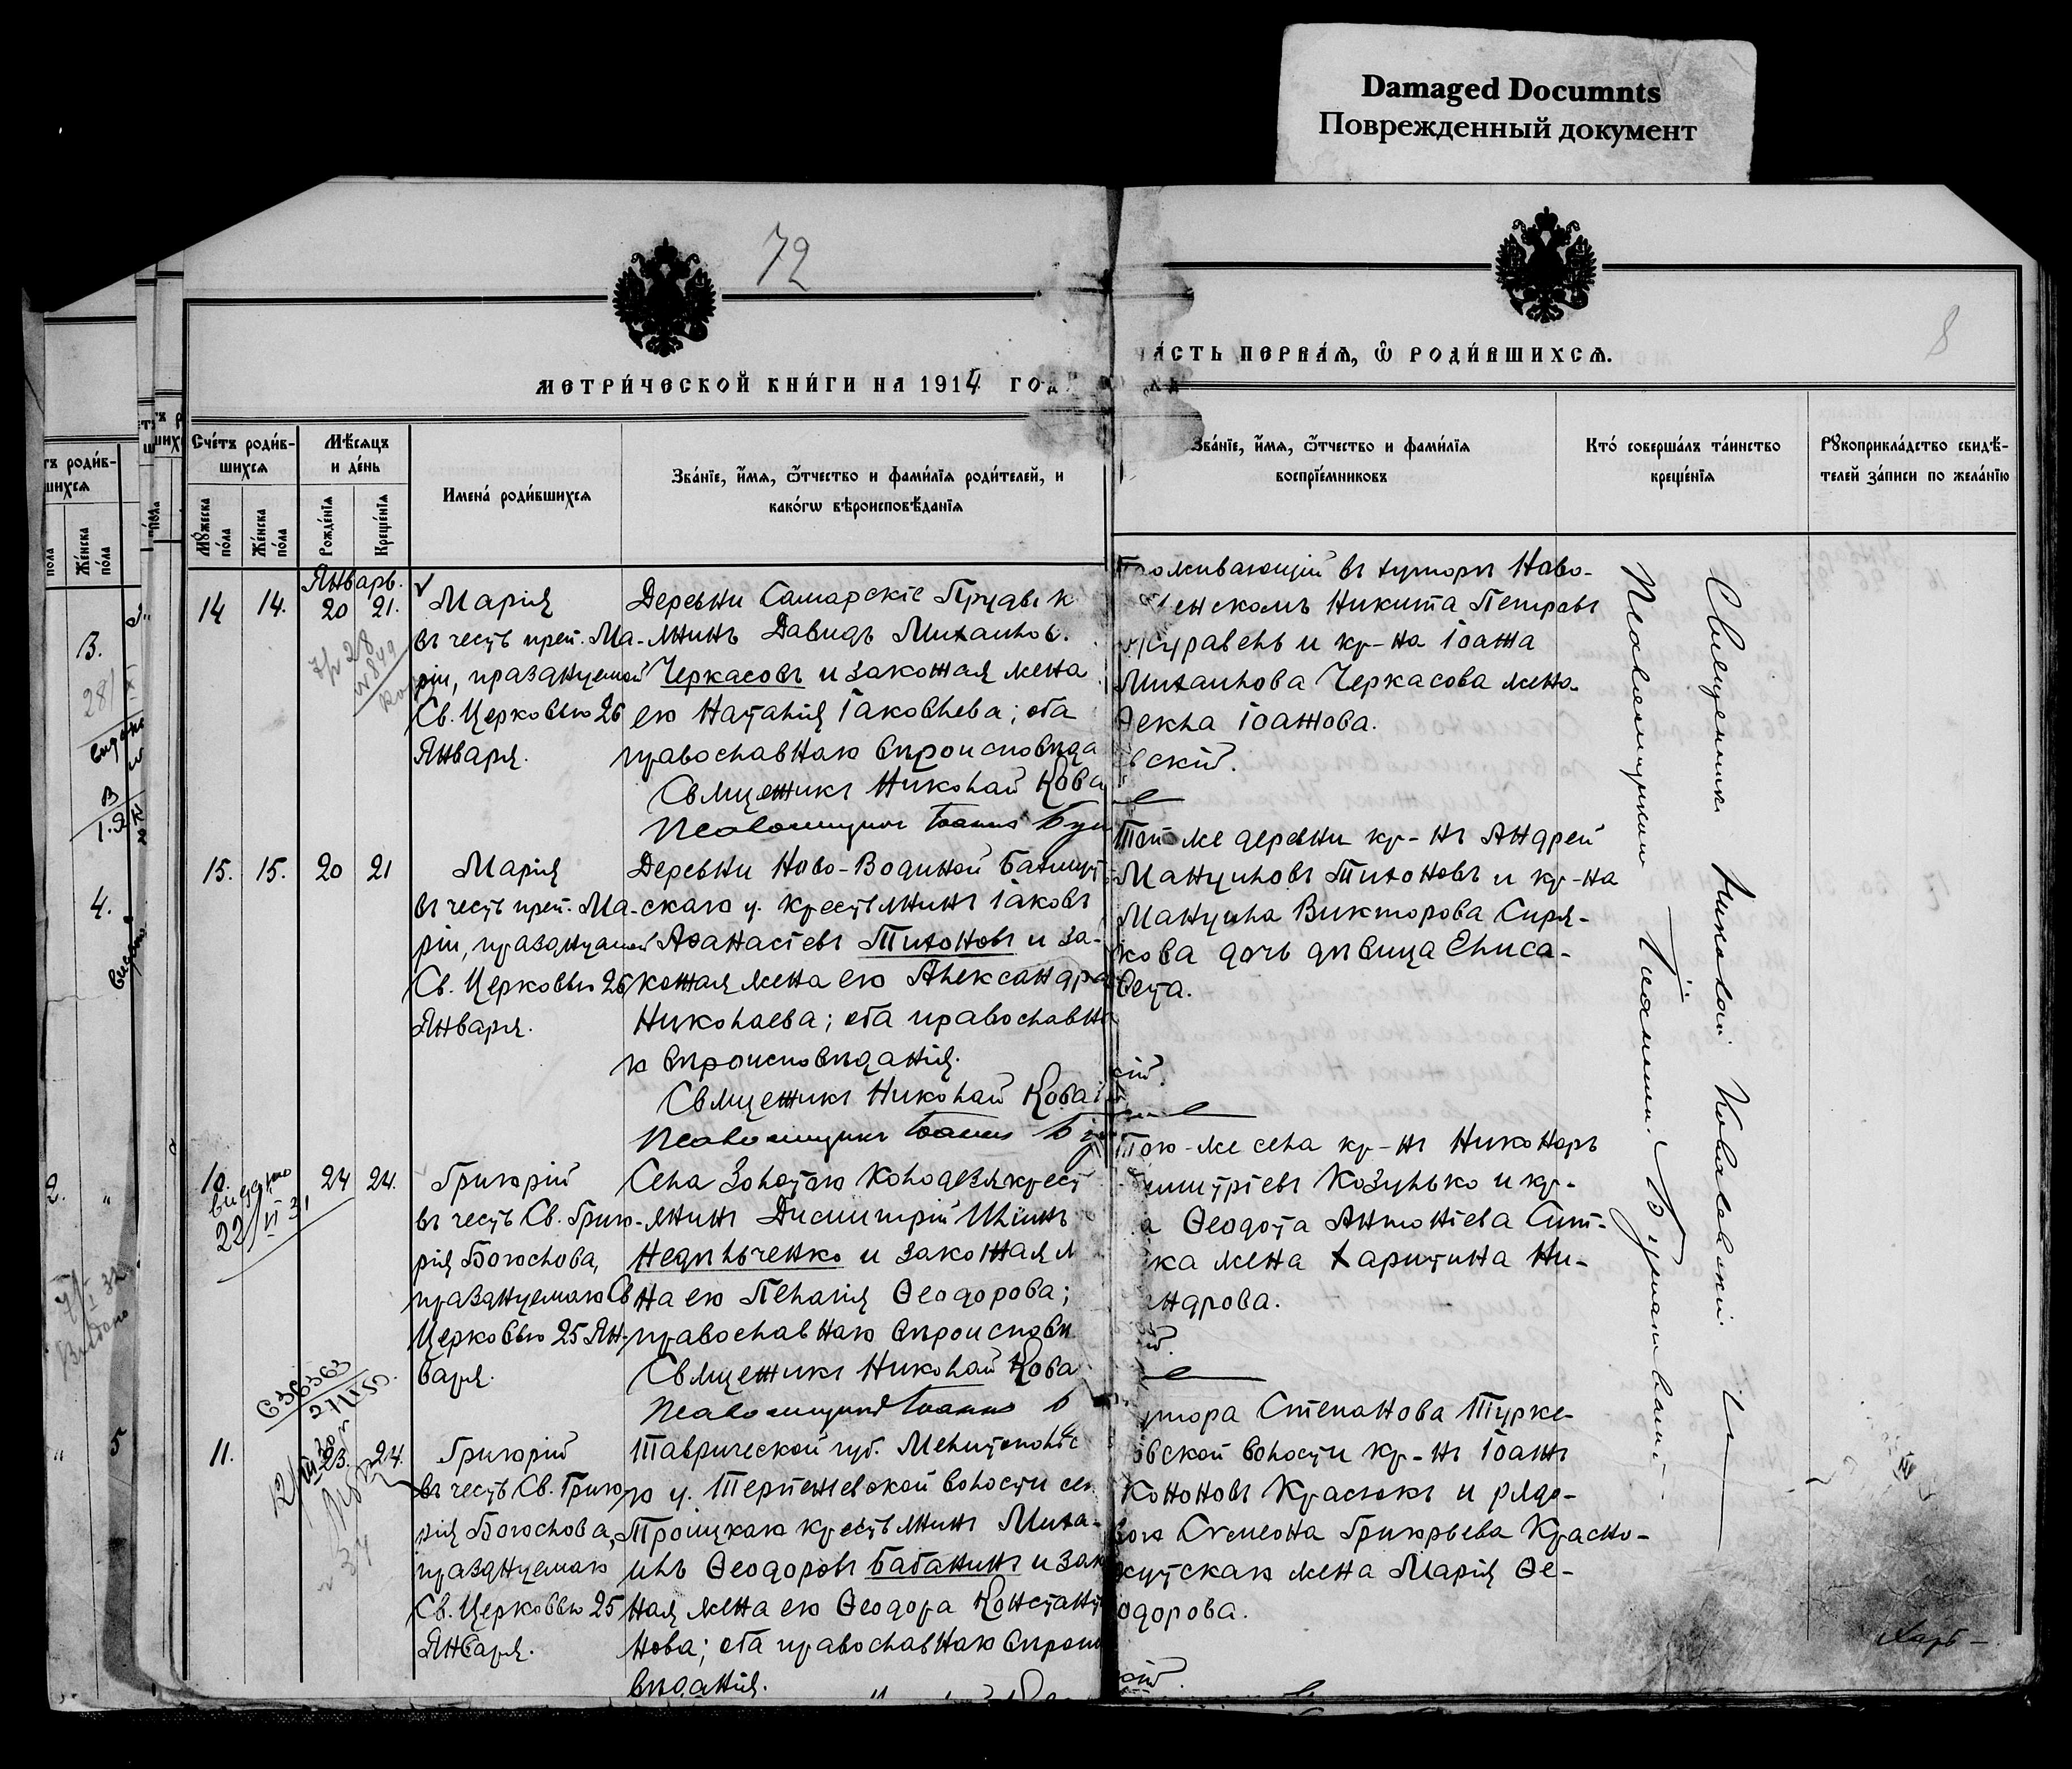 Damaged Documnts
Поврежденный документ
72
8
МЕТРИ́ЧЕСКОЙ КНИ́ГИ НА 1914 ГОД
ЧА́СТЬ ПЕРВАѦ, Ѽ РОДИ́ВШИХСѦ.
Сче́тъ роди́в-
шихсѧ
Мѣ́сѧцъ
и де́нь
Имена́ роди́вшихсѧ
Зва́нїе, и҆́мѧ, ѻ҆́тчество и фами́лїѧ роди́телей, и
како́гѡ вѣроисповѣ́данїѧ
Мꙋ́жеска по́ла
Же́нска по́ла
Рожде́нїѧ
Креще́нїѧ
Зва́нїе, и҆́мѧ, ѻ҆́тчество и фами́лїѧ
воспрїе́мниковъ
Кто́ соверша́лъ та́инство
креще́нїѧ
Рꙋкоприкла́дство свидѣ́-
телей за́писи по жела́нїю
Январь.
14 14. 20 21. Марія
въ честь преп. Ма-
ріи, празднуемой
Св. Церковью 26
Января.
Деревни Самарскіе Пруды к
янинъ Давидъ Михаилов.
Черкасовъ и законная жена
его Наталія Іаковлева; оба
православнаго вѣроисповѣда
Священникъ Николай Кова
Псаломщикъ Іоаннъ Бум
Проживающій въ хуторѣ Ново-
енскомъ Никита Петровъ
Журавель и кр-на Іоанна
Михаилова Черкасова жена
Ѳекла Іоаннова.
вскій.
15. 15. 20 21 Марія
въ честь преп. Ма-
ріи, празднуемой
Св. Церковью 26
Января.
Деревни Ново-Водиной Бахмут
скаго у. крестьянинъ Іаковъ
Аѳанасіевъ Тихоновъ и за-
конная жена его Александра
Николаева; оба православна
го вѣроисповѣданія.
Священникъ Николай Кова
Псаломщикъ Іоаннъ Бу
Той же деревни кр-нъ Андрей
Мануиловъ Тихоновъ и кр-на
Мануила Викторова Сиря-
кова дочь дѣвица Елиса-
вета.
кій.
10. 24 24. Григорій
выдано
22/VI 31
въ честь Св. Григо-
рія Богослова,
празднуемаго Св
Церковью 25 Ян-
варя.
Села Золотого Колодезя крест
янинъ Димитрій Ильинъ
Недильченко и законная ж
на его Пелагія Ѳеодорова;
православнаго вѣроисповѣ
Священникъ Николай Кова
Псаломщикъ Іоаннъ Б
Того-же села кр-нъ Никоноръ
имитріевъ Козулько и кр-
а Ѳеодота Антоніева Сит-
ка жена Харитина Ни-
ндрова.
й.
11. 23. 24. Григорій
въ честь Св. Григо
рія Богослова,
празднуемаго
Св. Церковью 25
Января.
Таврической губ. Мелитопольс
го у. Терпеніевской волости сел
Троицкаго крестьянинъ Миха-
илъ Ѳеодоровъ Бабанинъ и зак
ная жена его Ѳеодора Констант
нова; оба православнаго вѣроис
вѣданія.
утора Степанова Турке-
овской волости кр-нъ Іоаннъ
Кононовъ Краснокъ и рядо-
вого Симеона Григорьева Красно-
кутскаго жена Марія Ѳе-
одорова.
кій.
Священникъ Николай Ковалевскій
Псаломщикъ Іоаннъ